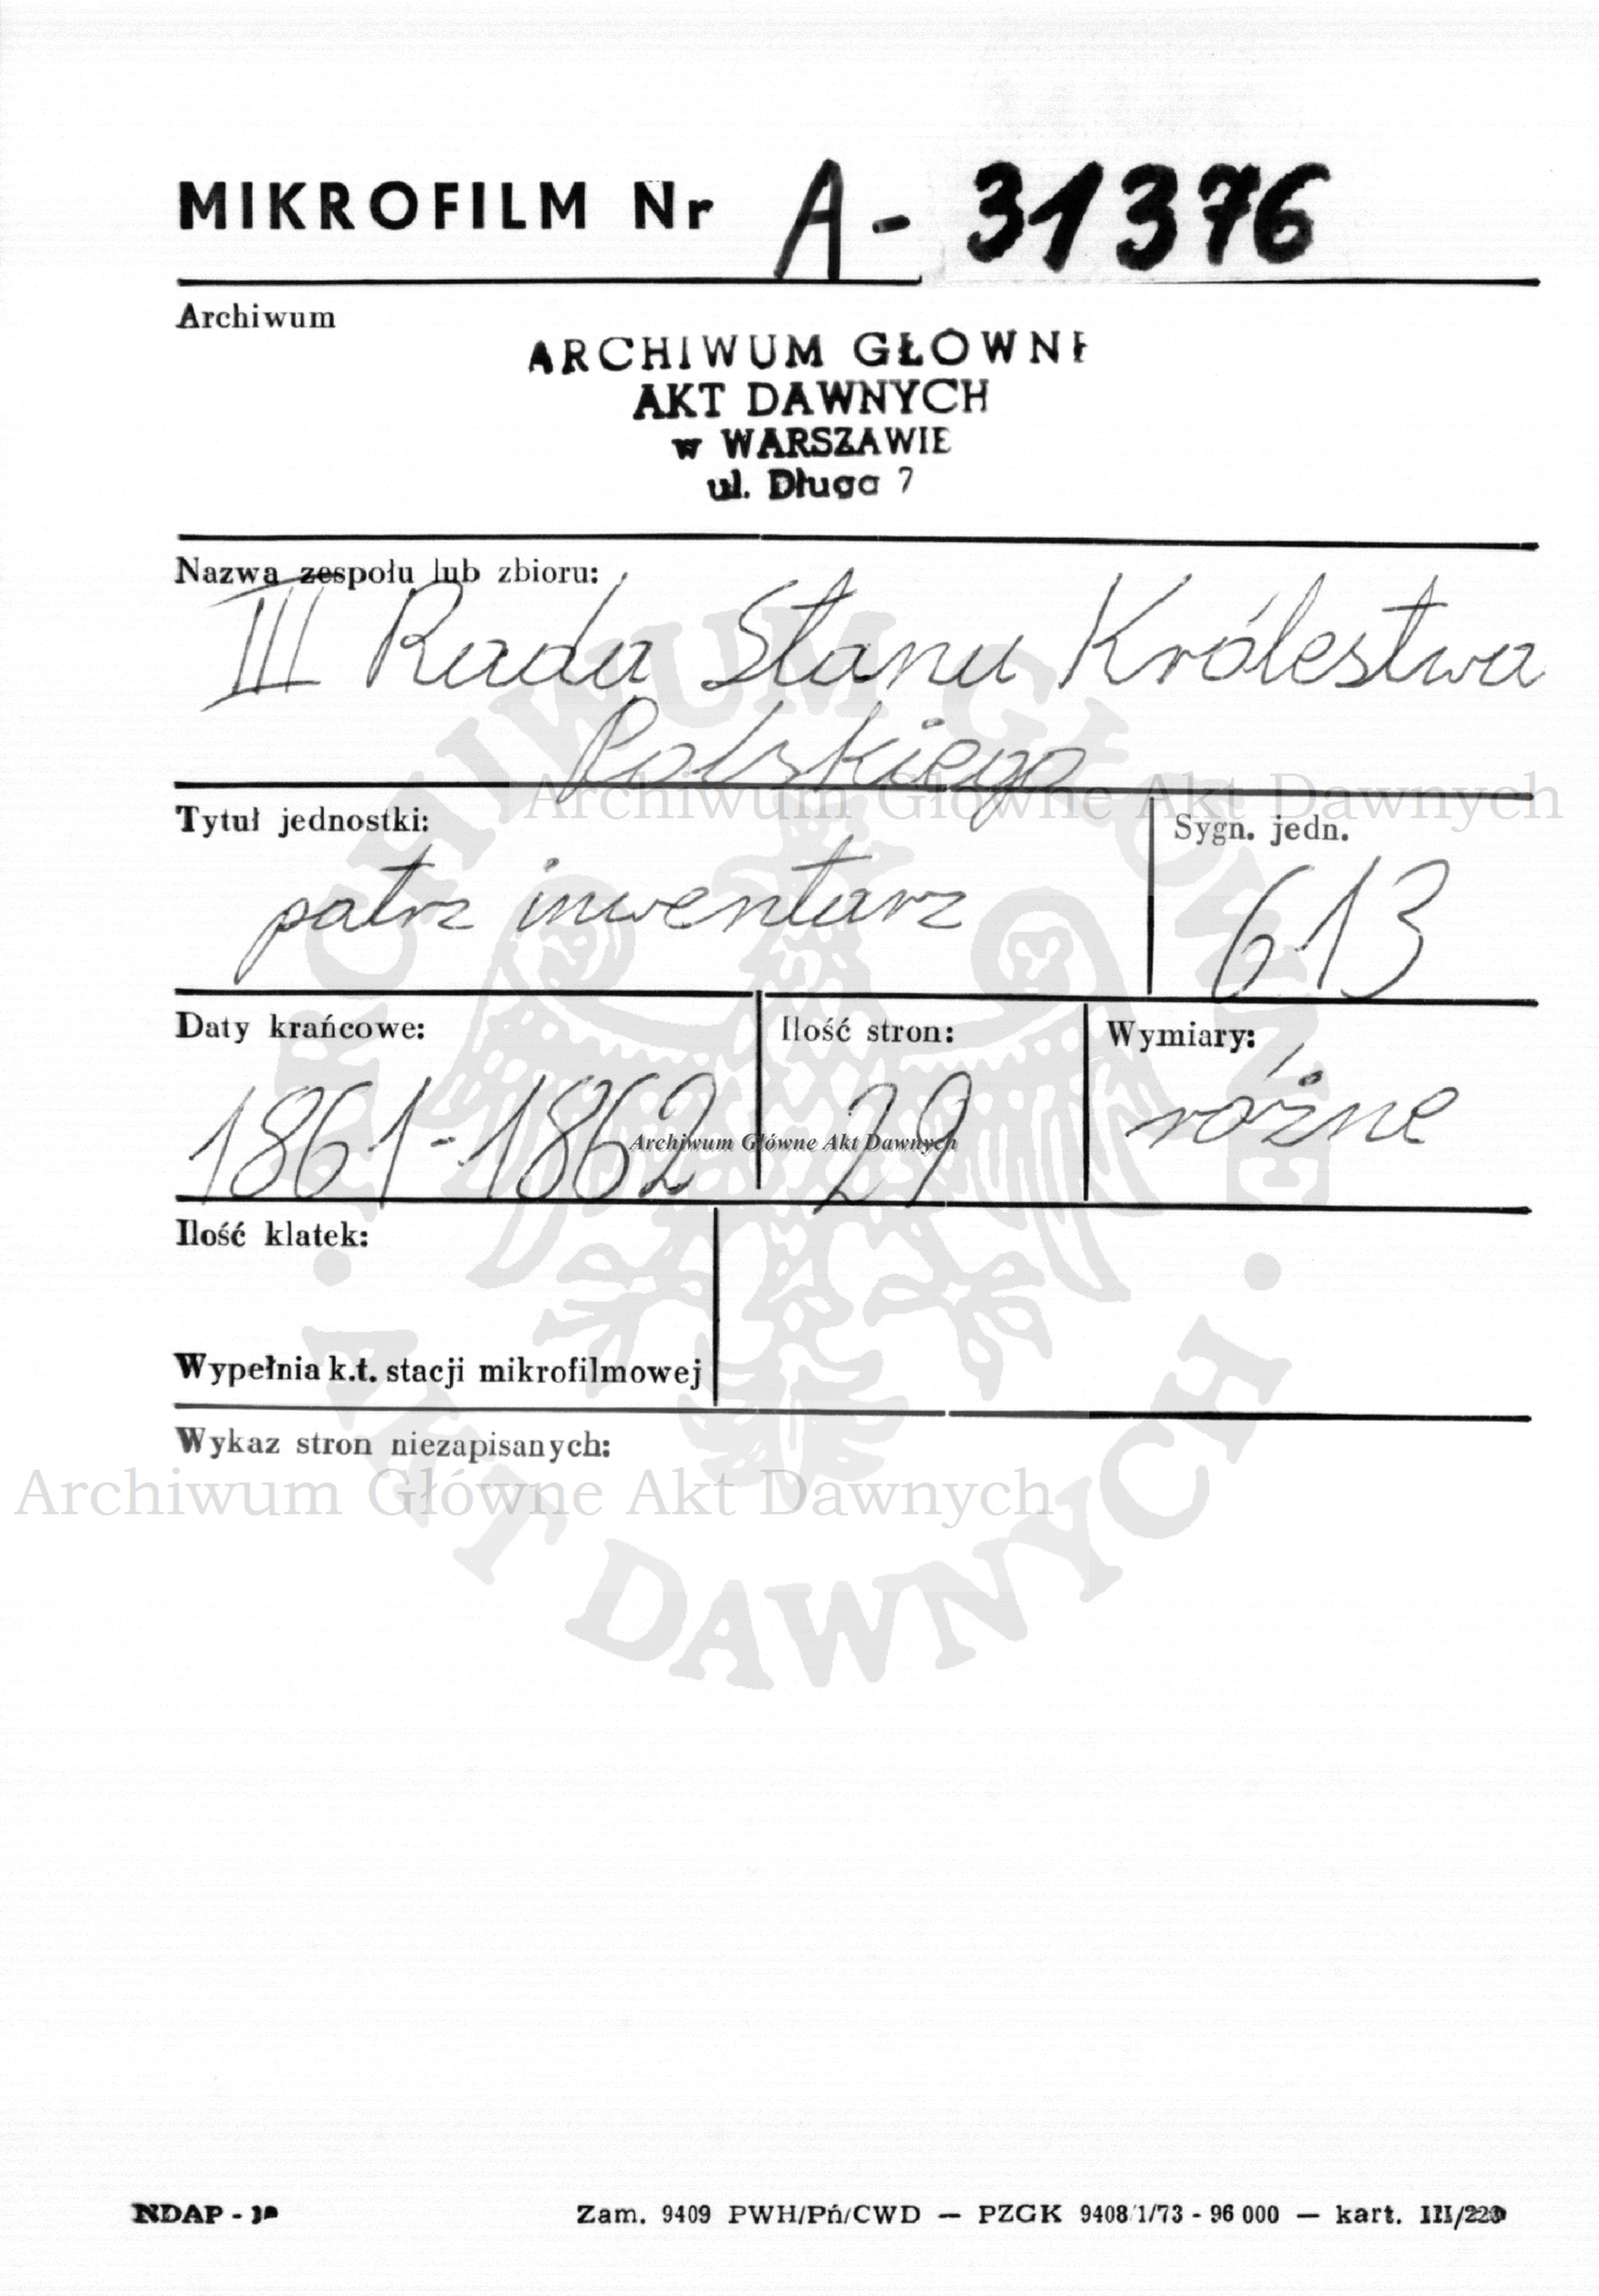 MIKROFILM Nr A - 31376
Archiwum
ARCHIWUM GŁÓWNE
AKT DAWNYCH
w WARSZAWIE
ul. Długa 7
Nazwa zespołu lub zbioru:
III Rada Stanu Królestwa
Polskiego
Archiwum Główne Akt Dawnych
Tytuł jednostki:
Sygn. jedn.
patrz inwentarz
613
Daty krańcowe:
Ilość stron:
Wymiary:
1861-1862
29
różne
Archiwum Główne Akt Dawnych
Ilość klatek:
Wypełnia k.t. stacji mikrofilmowej
Wykaz stron niezapisanych:
Archiwum Główne Akt Dawnych
ARCHIWUM GŁÓWNE
· AKT DAWNYCH ·
NDAP -
Zam. 9409 PWH/Pń/CWD — PZGK 9408/1/73 - 96 000 — kart. III/220